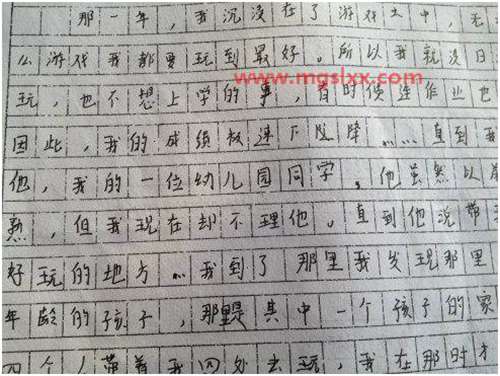 那一年，我沉没在了游戏之中，无
么游戏我都要玩到最好。所以我就没日
www.mgslxx.com
玩，也不想上学的事，有时候连作业也
因此，我的成绩极速下坠降……直到我
他，我的一位幼儿园同学，他虽然以前
熟，但我现在却不理他。直到他说带
好玩的地方…我到了那里我发现那里
年龄的孩子，那里是其中一个孩子的家
四个人带着我四处去玩，我在那时才